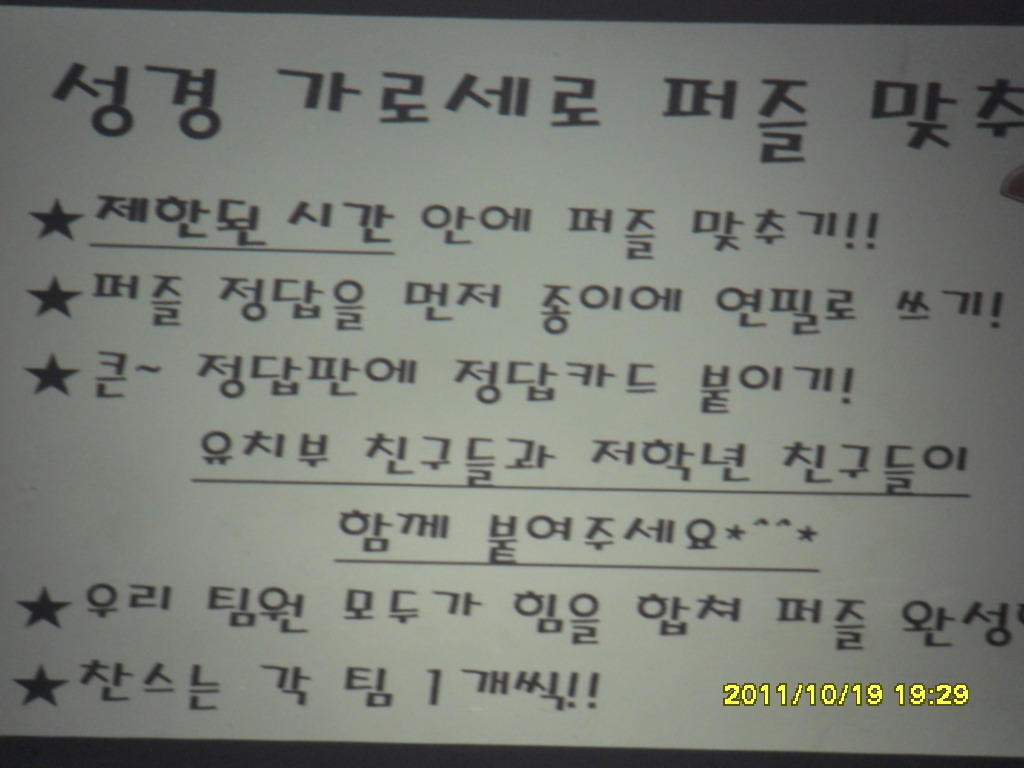 성경 가로세로 퍼즐 맞추
★제한된 시간 안에 퍼즐 맞추기!!
★퍼즐 정답을 먼저 종이에 연필로 쓰기!
★큰~ 정답판에 정답카드 붙이기!
유치부 친구들과 저학년 친구들이
함께 붙여주세요*^^*
★우리 팀원 모두가 힘을 합쳐 퍼즐 완성
★찬스는 각 팀 1개씩!!
2011/10/19 19:29